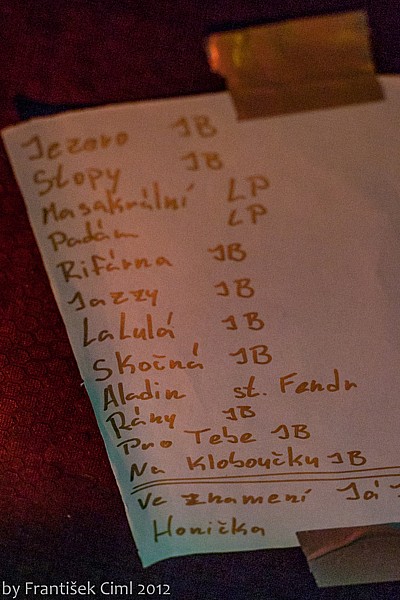 Jezero JB
Stopy JB
Masakrální LP
Padám LP
Rifárna JB
Jazzy JB
LaLulá JB
Skočná JB
Aladin st. Fendr
Rány JB
Pro Tebe JB
Na Kloboučku JB
Ve znamení Já
Honička
by František Ciml 2012